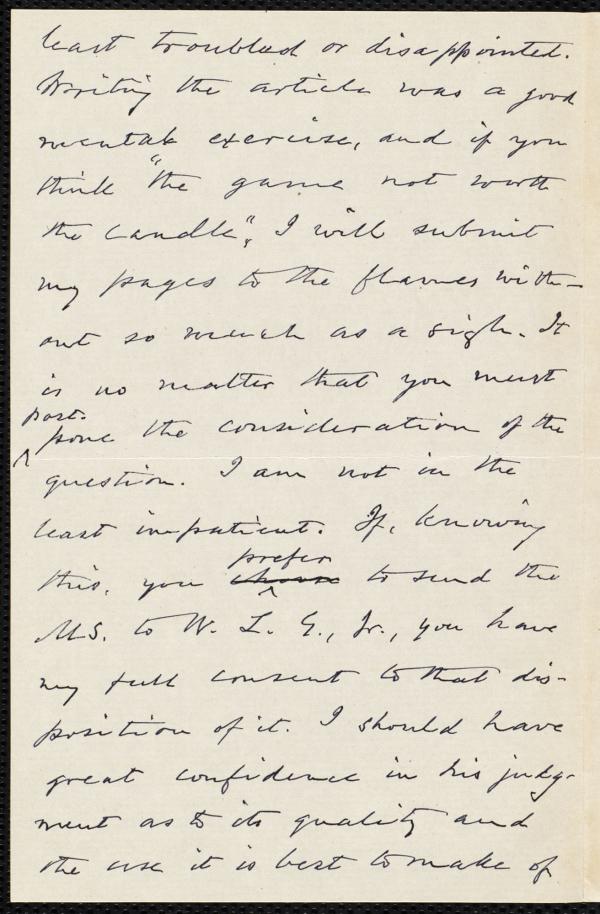 least troubled or disappointed.
Writing the article was a good
mental exercise, and if you
think "the game not worth
the candle", I will submit
my pages to the flames with-
out so much as a sigh. It
is no matter that you must
post-
pone the consideration of the
question. I am not in the
least impatient. If, knowing
prefer
this, you to send the
MS. to W. L. G., Jr., you have
my full consent to that dis-
position of it. I should have
great confidence in his judg-
ment as to its quality and
the use it is best to make of